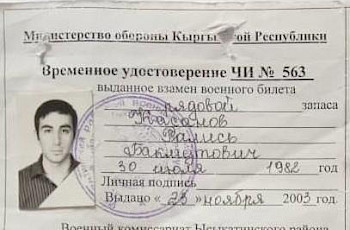 Министерство обороны Кыргызской Республики
Временное удостоверение ЧИ № 563
выданное взамен военного билета
рядовой запаса
Хасанов
Рамись
Бакмутович
30 июля 1982 год
Личная подпись
Выдано « 25 » ноября 2003 год.
Военный комиссариат Ысыкатинского района